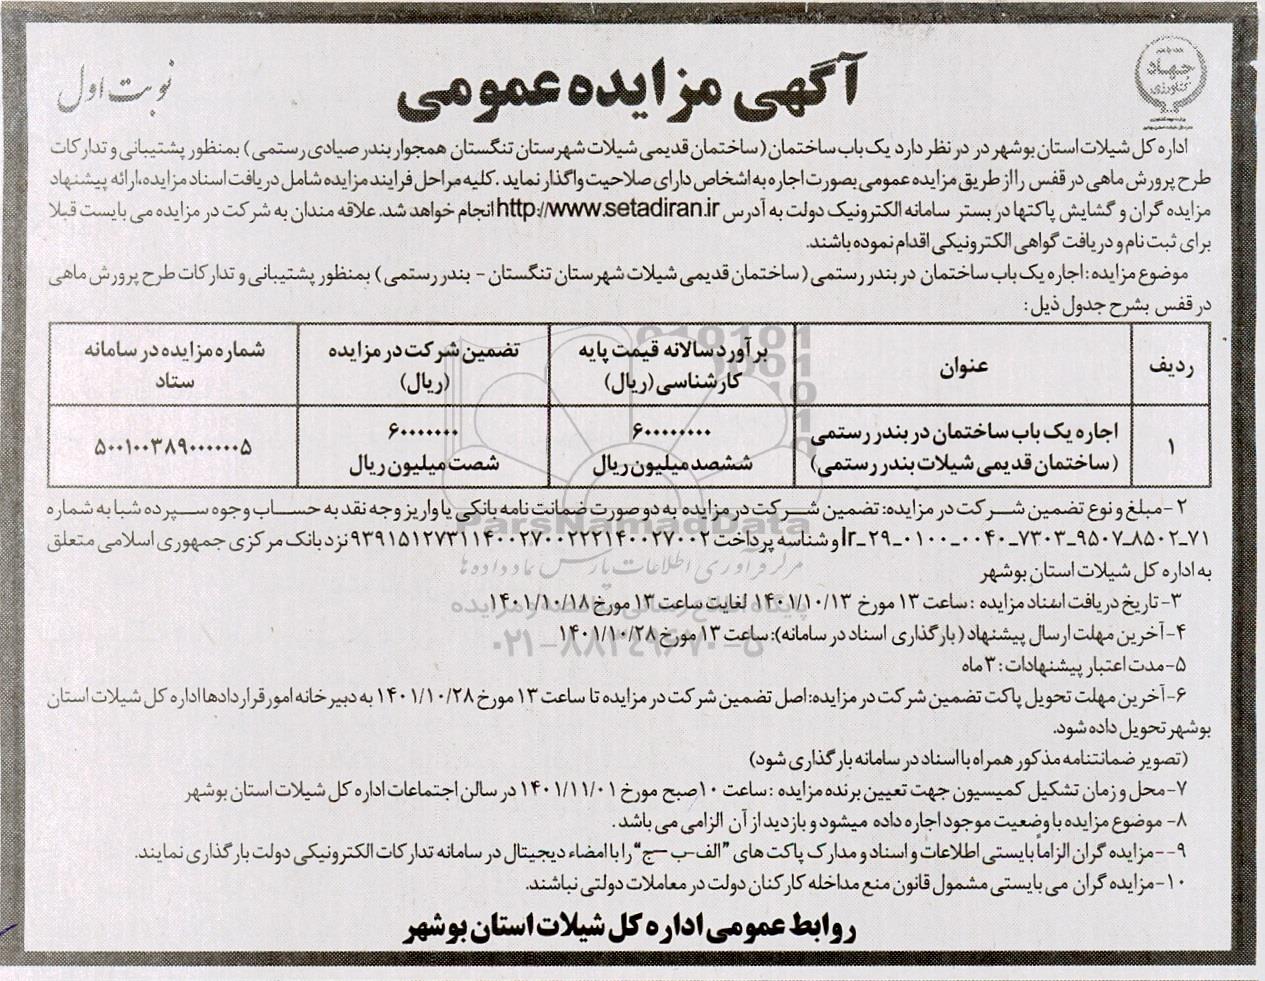 جهاد
کشاورزی
آگهی مزایده عمومی
نوبت اول
اداره کل شیلات استان بوشهر در در نظر دارد یک باب ساختمان (ساختمان قدیمی شیلات شهرستان تنگستان همجوار بندر صیادی رستمی) بمنظور پشتیبانی و تدارکات
طرح پرورش ماهی در قفس را از طریق مزایده عمومی بصورت اجاره به اشخاص دارای صلاحیت واگذار نماید .کلیه مراحل فرایند مزایده شامل دریافت اسناد مزایده،ارائه پیشنهاد
مزایده گران و گشایش پاکتها در بستر سامانه الکترونیک دولت به آدرس http://www.setadiran.ir انجام خواهد شد. علاقه مندان به شرکت در مزایده می بایست قبلا
برای ثبت نام و دریافت گواهی الکترونیکی اقدام نموده باشند.
موضوع مزایده :اجاره یک باب ساختمان در بندر رستمی (ساختمان قدیمی شیلات شهرستان تنگستان - بندر رستمی) بمنظور پشتیبانی و تدارکات طرح پرورش ماهی
در قفس بشرح جدول ذیل :
ردیف
عنوان
برآورد سالانه قیمت پایه
کارشناسی (ریال)
تضمین شرکت در مزایده
(ریال)
شماره مزایده در سامانه
ستاد
۱
اجاره یک باب ساختمان در بندر رستمی
(ساختمان قدیمی شیلات بندر رستمی)
۶۰۰۰۰۰۰۰۰
ششصد میلیون ریال
۶۰۰۰۰۰۰۰
شصت میلیون ریال
۵۰۰۱۰۰۳۸۹۰۰۰۰۰۰۵
۲-مبلغ و نوع تضمین شرکت در مزایده: تضمین شرکت در مزایده به دو صورت ضمانت نامه بانکی یا واریز وجه نقد به حساب وجوه سپرده شبا به شماره
۷۱_۸۵۰۲_۹۵۰۷_۷۳۰۳_۰۰۴۰_۰۱۰۰_۲۹_Ir و شناسه پرداخت ۹۳۹۱۵۱۲۷۳۱۱۴۰۰۲۷۰۰۲۲۲۱۴۰۰۲۷۰۰۲ نزد بانک مرکزی جمهوری اسلامی متعلق
به اداره کل شیلات استان بوشهر
۳- تاریخ دریافت اسناد مزایده : ساعت ۱۳ مورخ ۱۴۰۱/۱۰/۱۳ لغایت ساعت ۱۳ مورخ ۱۴۰۱/۱۰/۱۸
۴-آخرین مهلت ارسال پیشنهاد (بارگذاری اسناد در سامانه): ساعت ۱۳ مورخ ۱۴۰۱/۱۰/۲۸
۵-مدت اعتبار پیشنهادات : ۳ ماه
۶-آخرین مهلت تحویل پاکت تضمین شرکت در مزایده: اصل تضمین شرکت در مزایده تا ساعت ۱۳ مورخ ۱۴۰۱/۱۰/۲۸ به دبیرخانه امور قراردادها اداره کل شیلات استان
بوشهر تحویل داده شود.
(تصویر ضمانتنامه مذکور همراه با اسناد در سامانه بارگذاری شود)
۷-محل و زمان تشکیل کمیسیون جهت تعیین برنده مزایده : ساعت ۱۰ صبح مورخ ۱۴۰۱/۱۱/۰۱ در سالن اجتماعات اداره کل شیلات استان بوشهر
۸- موضوع مزایده با وضعیت موجود اجاره داده میشود و بازدید از آن الزامی می باشد .
۹--مزایده گران الزاماً بایستی اطلاعات و اسناد و مدارک پاکت های "الف-ب-ج" را با امضاء دیجیتال در سامانه تدارکات الکترونیکی دولت بارگذاری نمایند.
۱۰-مزایده گران می بایستی مشمول قانون منع مداخله کارکنان دولت در معاملات دولتی نباشند.
روابط عمومی اداره کل شیلات استان بوشهر
ParsNamadData
مرکز فرآوری اطلاعات پارس نماد داده ها
۰۲۱-۸۸۳۴۹۶۷۰-۵